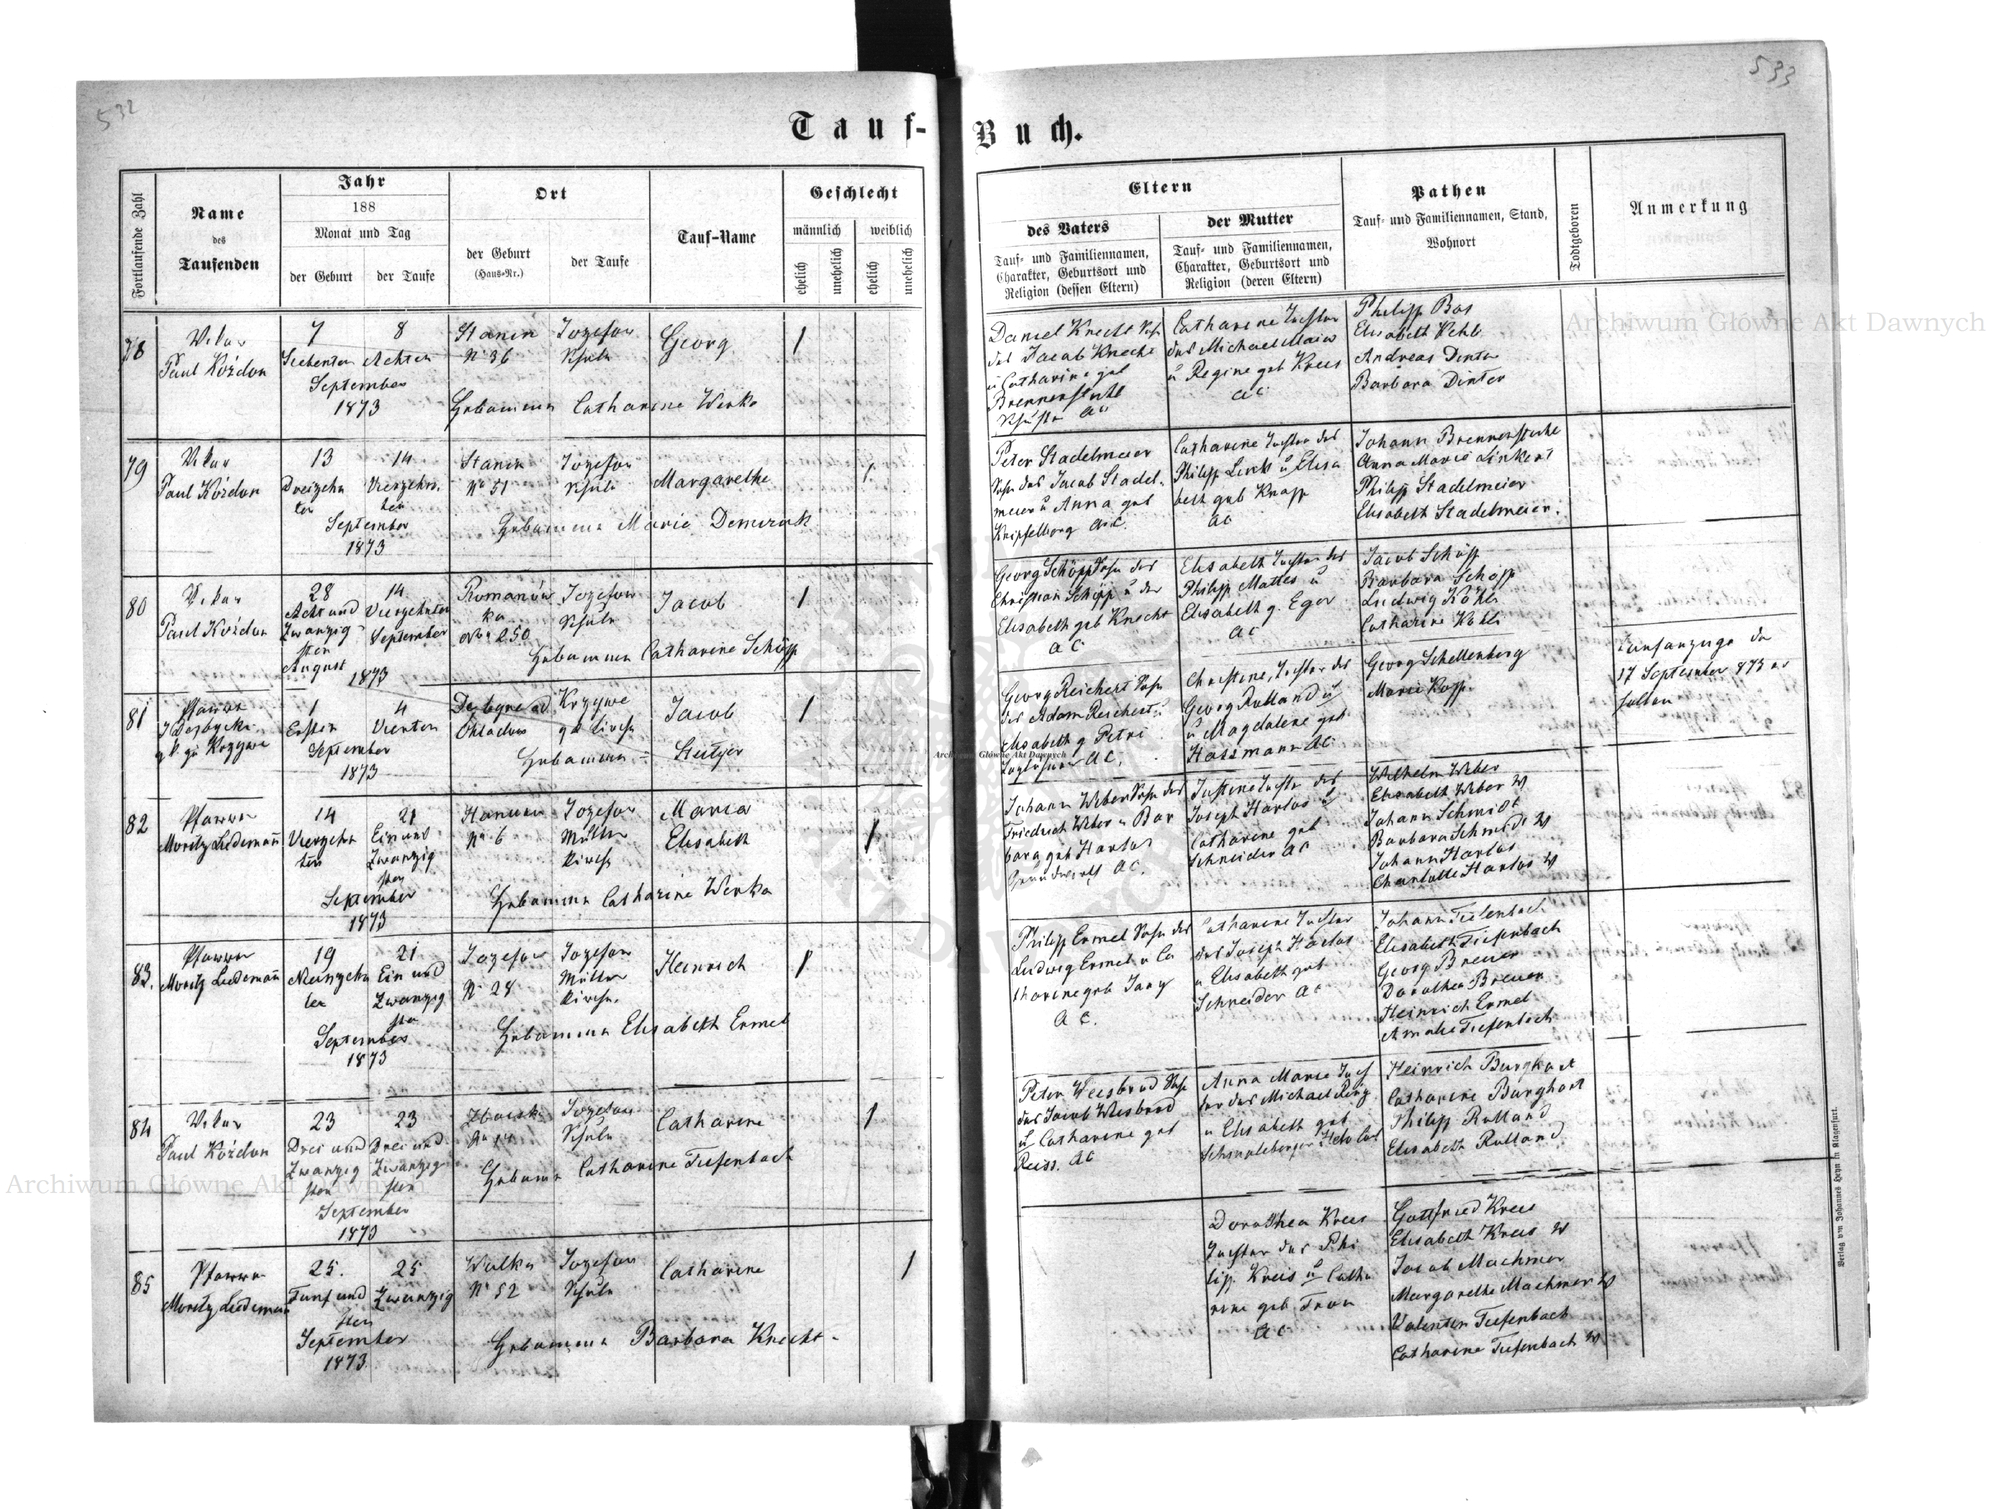 532
533
Tauf-Buch.
Fortlaufende Zahl
Name
des
Taufenden
Jahr
188
Monat und Tag
der Geburt
der Taufe
Ort
der Geburt
(Haus-Nr.)
der Taufe
Tauf-Name
Geschlecht
männlich
weiblich
ehelich
unehelich
ehelich
unehelich
Eltern
des Vaters
Tauf- und Familiennamen,
Charakter, Geburtsort und
Religion (dessen Eltern)
der Mutter
Tauf- und Familiennamen,
Charakter, Geburtsort und
Religion (deren Eltern)
Pathen
Tauf- und Familiennamen, Stand,
Wohnort
Todtgeboren
Anmerkung
78
Vikar
Paul Kózdon
7
Siebenten
8
Achten
September
1873
Stanin
No 36
Jozefow
Schule
Georg
1
Hebamme Catharine Werke
Daniel Knecht Sohn
des Jacob Knecht
u Catharine geb
Catharine Tochter
des Michael Maier
u Regine geb Krees
AC
Philipp Bos
Elisabeth Kehl
Andreas Dinter
Barbara Dinter
79
Vikar
Paul Kózdon
13
Dreizehn
ten
14
Vierzehn
ten
September
1873
Stanin
No 51
Jozefow
Schule
Margarethe
1
Hebamme Marie Demczuk
Peter Stadelmeier
Sohn des Jacob Stadel
meier u Anna geb
Knipfelberg AC.
Catharine Tochter des
Philipp Linck u Elisa
beth geb Knapp
AC
Johann Brennerstuhl
Anna Marie Linkert
Philipp Stadelmeier
Elisabeth Stadelmeier.
80
Vikar
Paul Kózdon
28
Acht und
Zwanzig
sten
August
14
Vierzehnten
September
1873
Romanów
ka
No 250
Jozefow
Schule
Jacob
1
Hebamme Catharine Schöpp
Georg Schöpp Sohn des
Christian Schöpp u der
Elisabeth geb Knecht
AC
Elisabeth Tochter des
Philipp Mattes u
Elisabeth g. Eger
AC
Jacob Schöpp
Barbara Schöpp
Ludwig Köhli
Catharine Köhli
81
Pfarrer
1
Ersten
4
Vierten
September
1873
Jacob
1
Hebamme
Georg Reichert Sohn
des Adam Reichert u
Elisabeth g Petri
AC.
Christine, Tochter des
Georg Rulland u
u Magdalene geb
Hassmann AC
Georg Schellenberg
Marie Kopp
17 September 873
82
Pfarrer
Moritz Ludemañ
14
Vierzehn
ten
21
Ein und
Zwanzig
sten
September
1873
Hanunin
No 6
Jozefow
Mutter
Kirche
Maria
Elisabeth
1
Hebamme Catharine Werka
Johann Weber Sohn des
Friedrich Weber u Bar
bara geb Harlos
Grundwirth AC.
Justine Tochter des
Joseph Harlos u
Catharine geb
Schneider AC
Wilhelm Weber
Elisabeth Weber W
Johann Schmidt
Barbara Schmidt W
Johann Harlos
Charlotte Harlos W
83.
Pfarrer
Moritz Ludemañ
19
Neunzehn
ten
21
Ein und
Zwanzig
sten
September
1873
Jozefow
No 28
Jozefow
Mutter
Kirche.
Heinrich
1
Hebamme Elisabeth Ermel
Philipp Ermel Sohn des
Ludwig Ermel u Ca
tharine geb Jany
AC.
Catharine Tochter
des Joseph Harlos
u Elisabeth geb
Schneider AC
Johann Tiefenbach
Elisabeth Tiefenbach
Georg Breuer
Dorothea Breuer
Heinrich Ermel
Amalie Tiefenbach
84
Vikar
Paul Kózdon
23
Drei und
Zwanzig
sten
23
Drei und
Zwanzig
sten
September
1873
Jozefow
Schule
Catharine
1
Hebamme Catharine Tiefenbach
Peter Weesbrod Sohn
des Jacob Weesbrod
u Catharine geb
Reiss. AC
Anna Marie Toch
ter des Michael Ring
u Elisabeth geb
Heinrich Burghart
Catharine Burghart
Philipp Rulland
Elisabeth Rulland
85
Pfarrer
Moritz Ludemann
25.
25
Fünf und Zwanzig
sten
September
1873
Wolka
No 52
Jozefow
Schule
Catharine
1
Hebamme Barbara Knecht
Dorothea Krees
Tochter des Phi
lipp Kreis u Catha
rine geb Fran
AC
Gottfried Krees
Elisabeth Kreis W
Jacob Machmer
Margarethe Machmer W
Valentin Tiefenbach
Catharine Tiefenbach W
Verlag von Johannes Heyn in Klagenfurt.
Archiwum Główne Akt Dawnych
Archiwum Główne Akt Dawnych
Archiwum Główne Akt Dawnych